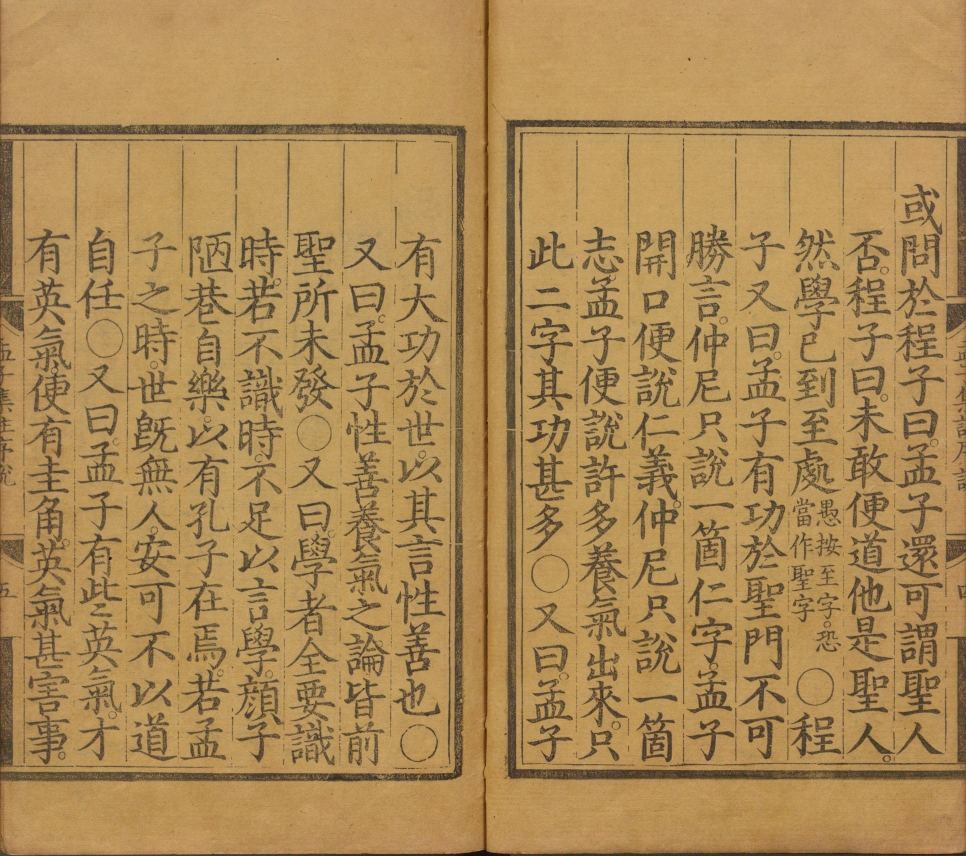 或問於程子曰。孟子還可謂聖人
否。程子曰。未敢便道他是聖人。
然學已到至處愚按至字。恐當作聖字〇程
子又曰。孟子有功於聖門不可
勝言。仲尼只說一箇仁字。孟子
開口便說仁義。仲尼只說一箇
志孟子便說許多養氣出來。只
此二字其功甚多〇又曰。孟子
有大功於世。以其言性善也〇
又曰。孟子性善養氣之論。皆前
聖所未發〇又曰。學者全要識
時。若不識時。不足以言學。顏子
陋巷自樂。以有孔子在焉。若孟
子之時。世旣無人。安可不以道
自任〇又曰。孟子有此英氣。才
有英氣。便有圭角。英氣甚害事。
孟子集註序說
五